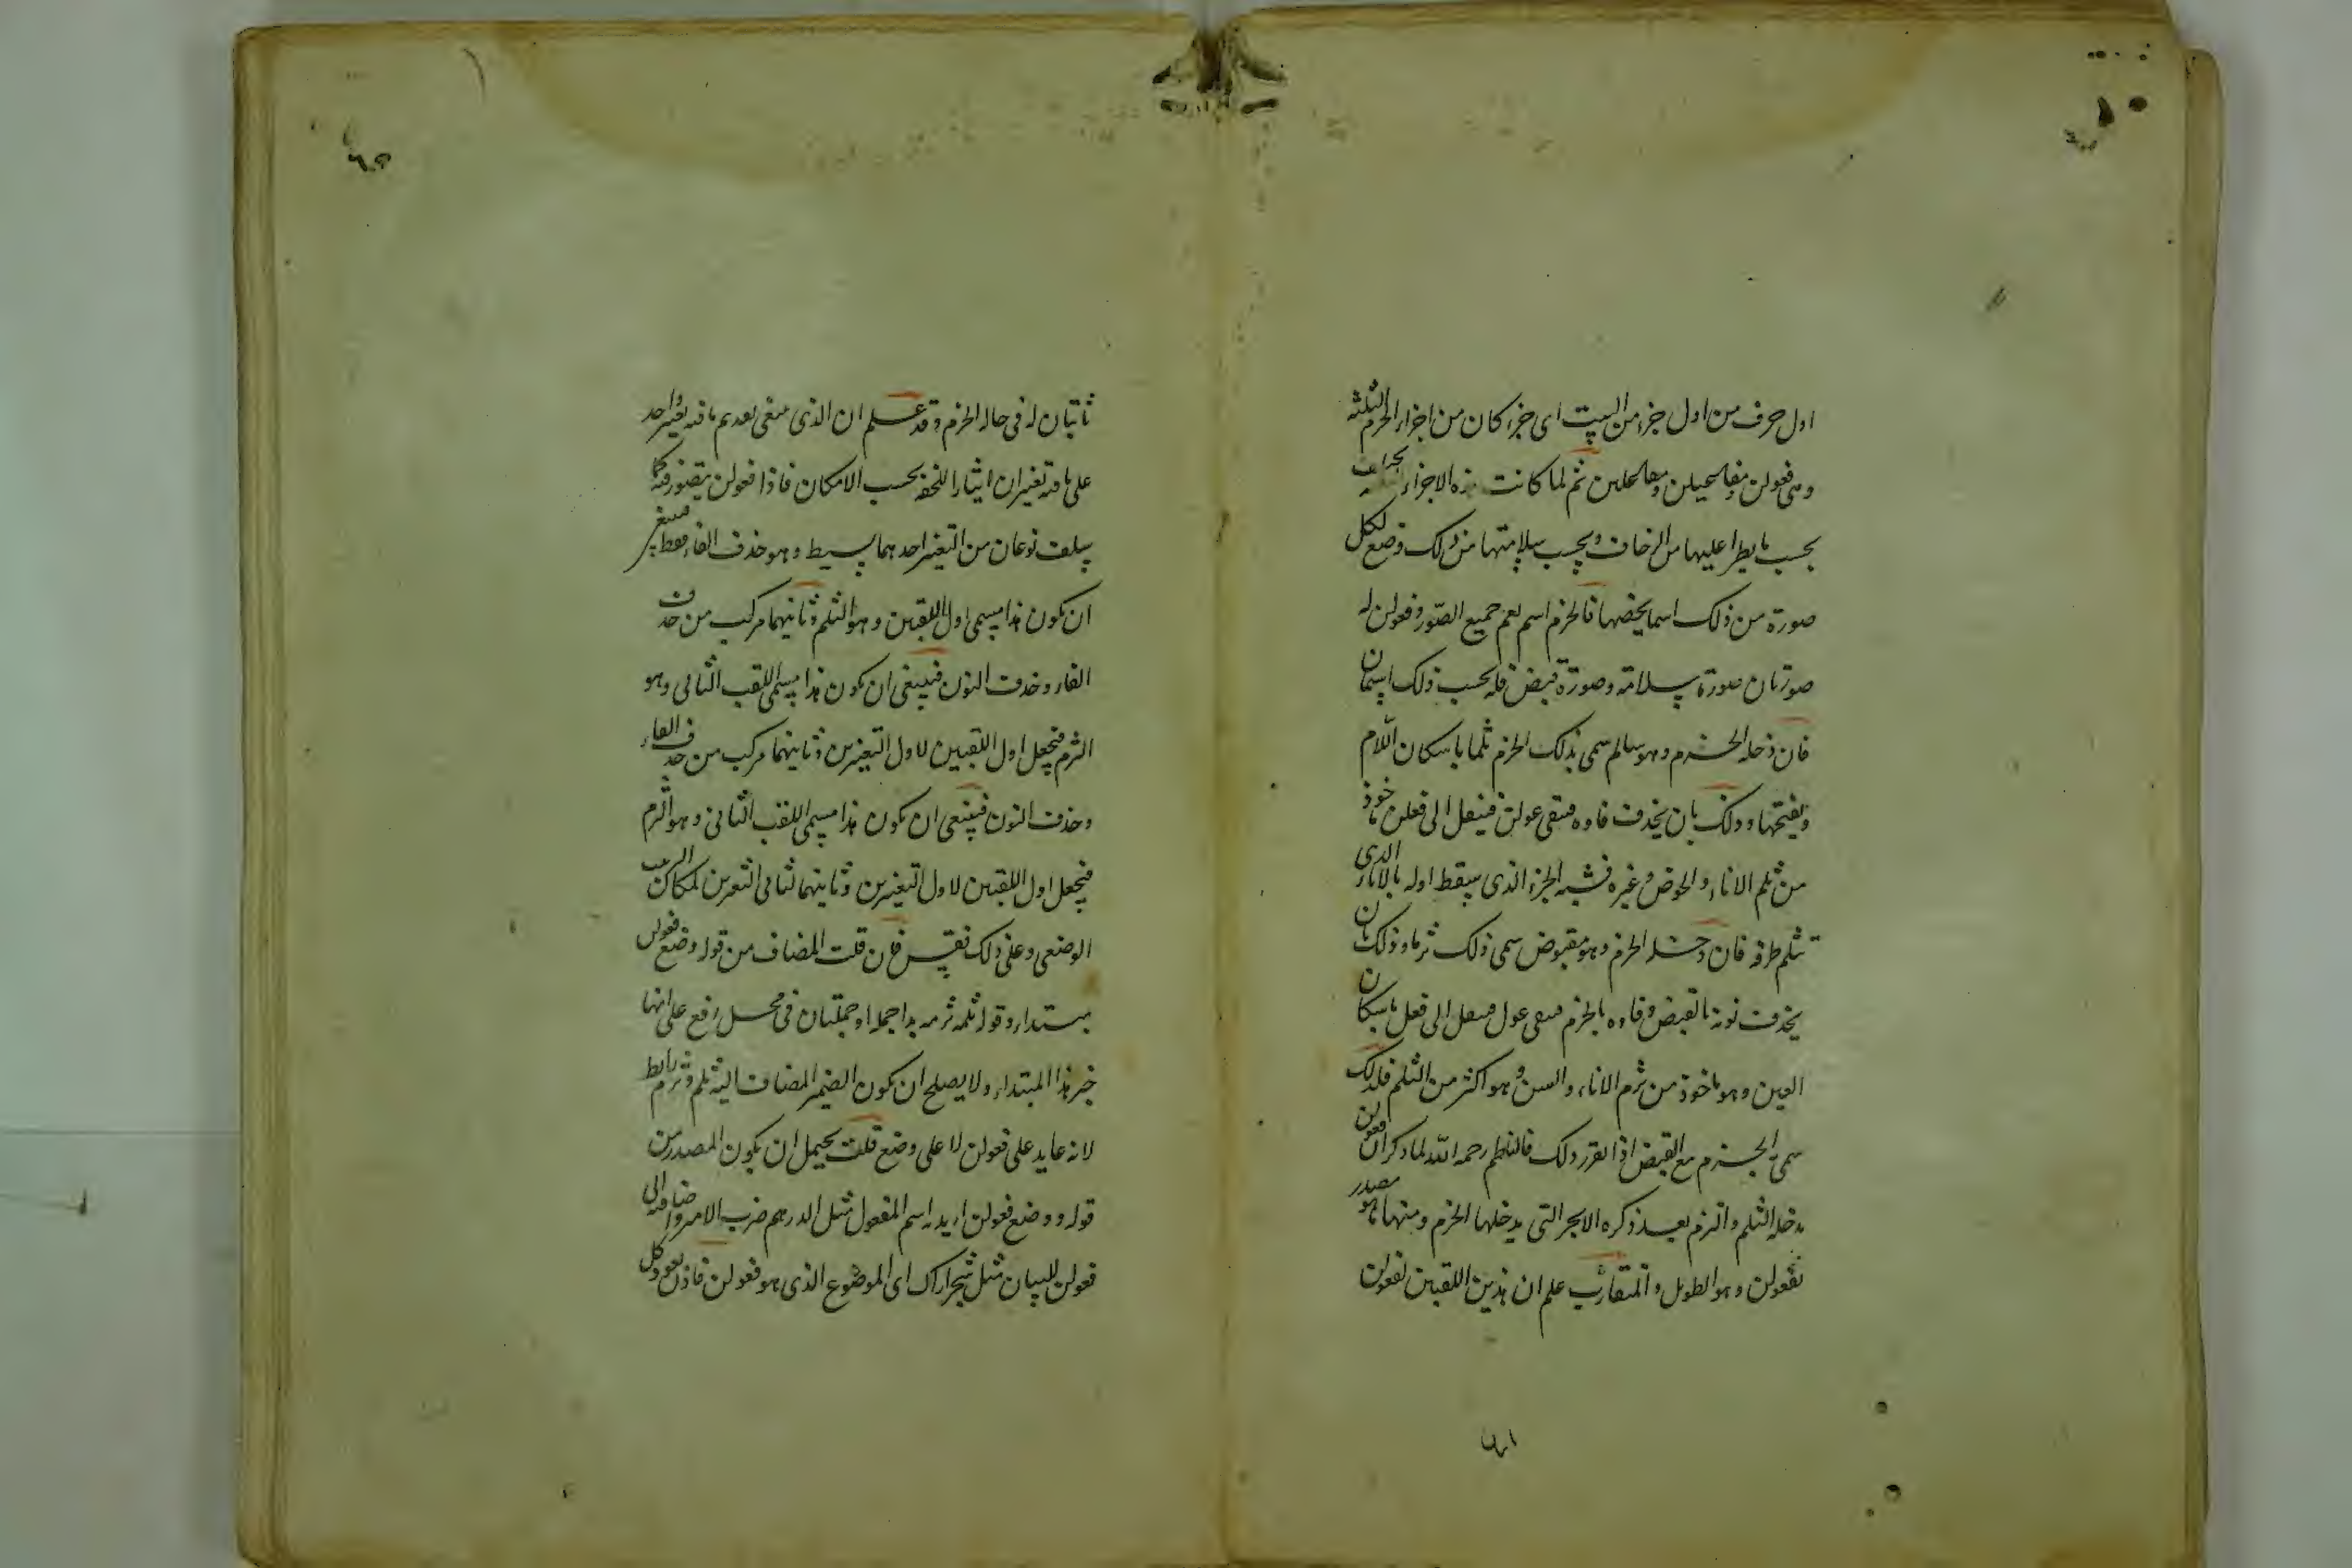 اول حرف من اول جزء من البيت اى جزء كان من اجزاء الخرم الثلثة
وهى فعولن ومفاعيلن ومفاعلتن ثم لما كانت هذه الاجزاء
بحسب ما يطرا عليها من الزحاف وبحسب سلامتها من ذلك وضع لكل
صورة من ذلك اسما يخصها فالخرم اسم يعم جميع الصور وفعولن له
صورتان صورة سلامة وصورة قبض فله بحسب ذلك اسمان
فان دخله الخرم وهو سالم سمى ذلك الخرم ثلما باسكان اللام
وبفتحها وذلك بان يحذف فاوه فيبقى عولن فينقل الى فعلن ماخوذ
من ثلم الاناء والحوض وغيره فشبه الجزء الذى يسقط اوله بالاناء الذى
تثلم طرفه فان دخله الخرم وهو مقبوض سمى ذلك ثرما وذلك بان
يحذف نونه بالقبض وفاوه بالخرم فيبقى عول فينقل الى فعل باسكان
العين وهو ماخوذ من ثرم الاناء والسن وهو اكثر من الثلم فلذلك
سمى به الخرم مع القبض اذا تقرر ذلك فالناظم رحمه الله لما ذكر ان فعولن
يدخله الثلم والثرم بعد ذكره الابحر التى يدخلها الخرم ومنها ما هو مصدر
بفعولن وهو الطويل والمتقارب علم ان هذين اللقبين لفعولن
ثابتان له فى حالة الخرم وقد علم ان الذى ينبغى تقديم ما فيه تغير واحد
على ما فيه تغيران ايثارا للخفة بحسب الامكان فاذا فعولن يتصور فيه كما
سلف نوعان من التغير احدهما بسيط وهو حذف الفاء فقط فينبغى
ان يكون هذا مسمى اول اللقبين وهو الثلم وثانيهما مركب من حذف
الفاء وحذف النون فينبغى ان يكون هذا مسمى اللقب الثانى وهو
الثرم فيجعل اول اللقبين لاول التغيرين وثانيهما مركب من حذف الفاء
وحذف النون فينبغى ان يكون هذا مسمى اللقب الثانى وهو الثرم
فيجعل اول اللقبين لاول التغيرين وثانيهما لثانى التغيرين لمكان الترتيب
الوضعى وعلى ذلك فقس فان قلت المضاف من قوله وضع فعولن
مبتداء وقوله ثلمه ثرمه بدا جملة او جملتان فى محل رفع على انها
خبر هذا المبتداء ولا يصلح ان يكون الضمير المضاف اليه ثلم وثرم رابط
لانه عايد على فعولن لا على وضع قلت يحتمل ان يكون المصدر من
قوله ووضع فعولن اريد به اسم المفعول مثل الدرهم ضرب الامير واضافته الى
فعولن للبيان مثل شجر اراك اى الموضوع الذى هو فعولن فاذن يعود كل